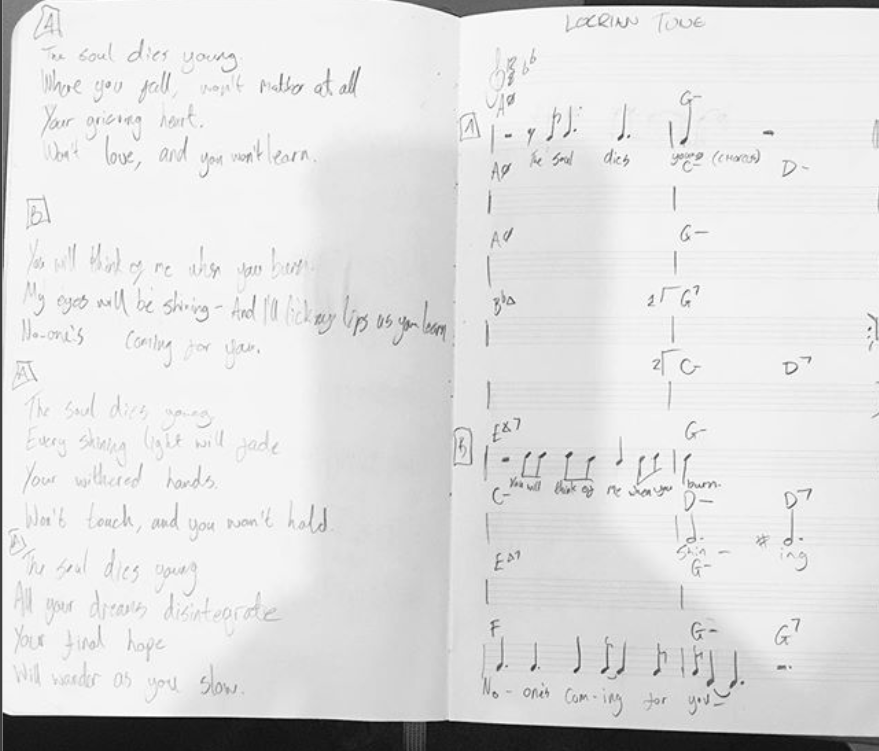 A
The soul dies young.
Where you fall, won't matter at all
Your grieving heart.
Won't love, and you won't learn.
B
You will think of me when you burn
My eyes will be shining - And I'll lick my lips as you learn
No-one's coming for you.
A
The soul dies young
Every shining light will fade
Your withered hands.
Won't touch, and you won't hold.
A
The soul dies young
All your dreams disintegrate
Your final hope
Will wander as you slow.
LOCRIAN TUNE
Aø G-
A
The soul dies young (CHORUS)
Aø C- D-
Aø G-
B♭Δ 2 G7
2 C- D7
G-
B
You will think of me when you burn.
C- D- D7
Shin - ing
G-
F G- G7
No - one's Com - ing for you